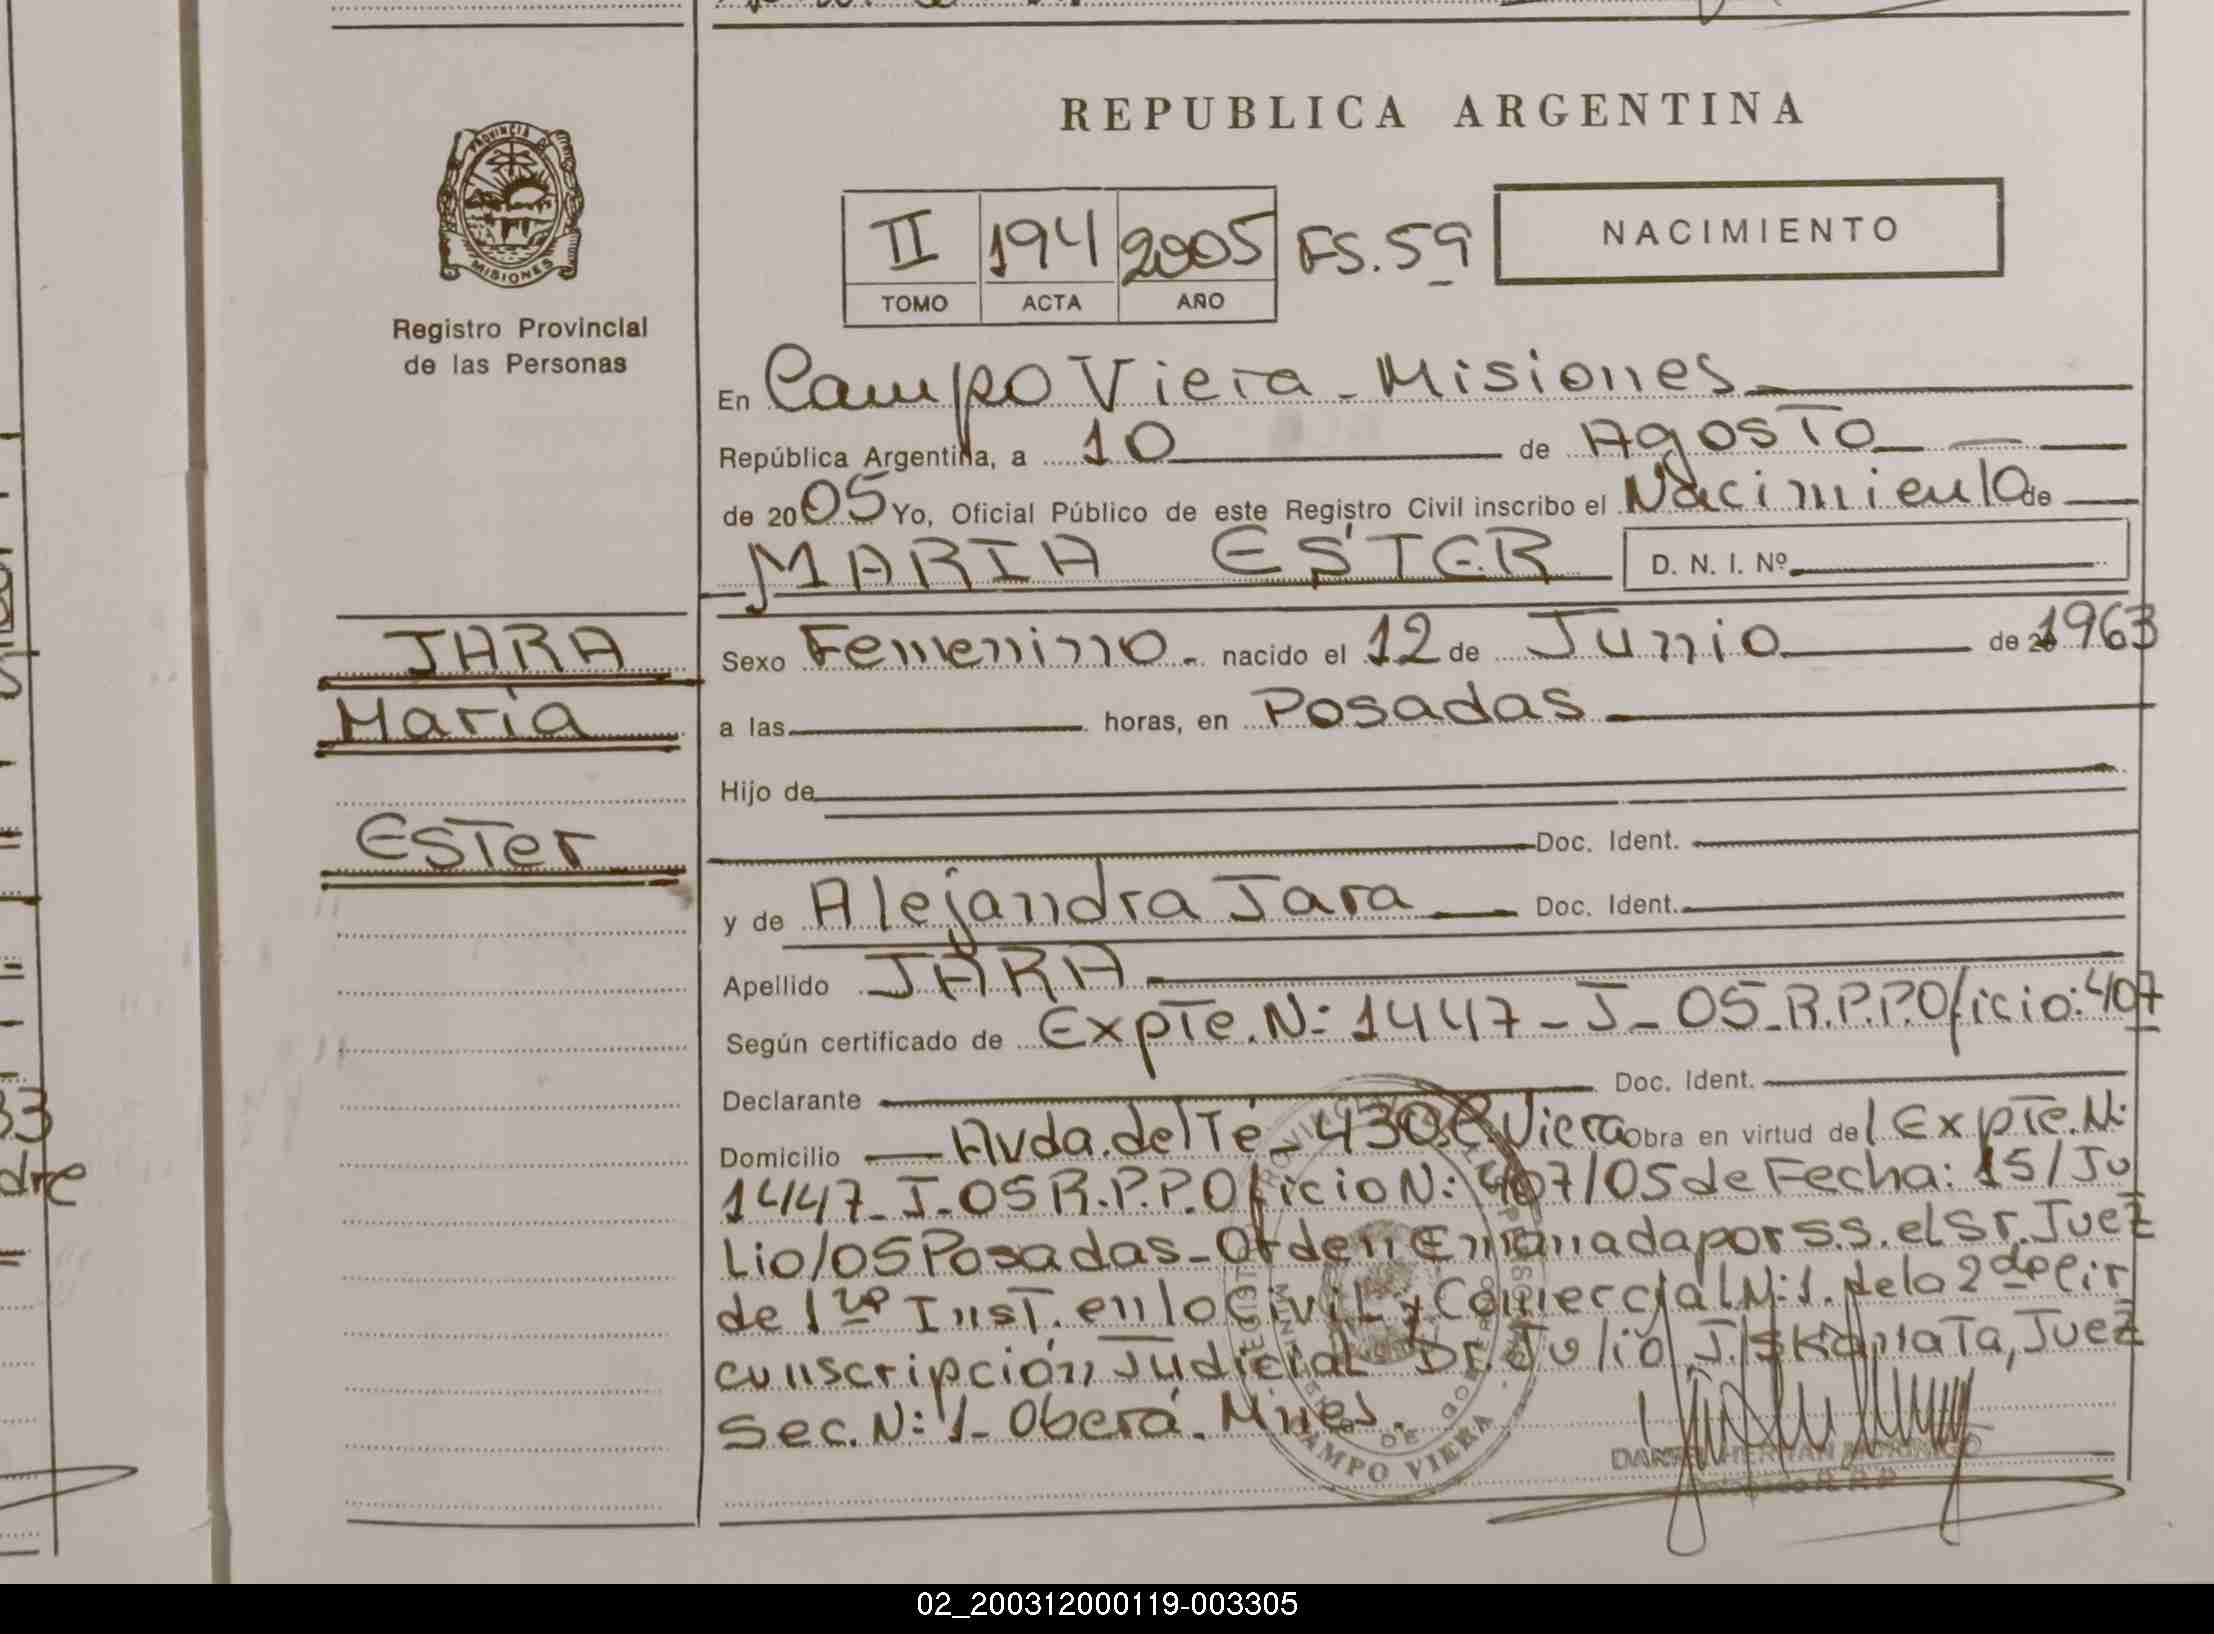 REPUBLICA ARGENTINA
PROVINCIA DE
MISIONES
Registro Provincial
de las Personas
II 194 2005 FS. 59
TOMO ACTA AÑO
NACIMIENTO
En Campo Viera - Misiones
República Argentina, a 10 de Agosto
de 2005 Yo, Oficial Público de este Registro Civil inscribo el Nacimiento de
MARIA ESTER D. N. I. Nº
JARA
Maria
Ester
Sexo Femenino - nacido el 12 de Junio de 20 1963
a las horas, en Posadas
Hijo de
Doc. Ident.
y de Alejandra Jara Doc. Ident.
Apellido JARA
Según certificado de Expte. N: 1447 - J - 05 - R.P.P. Oficio: 407
Declarante Doc. Ident.
Domicilio Avda. del Té - 430 C. Viera obra en virtud del Expte. N:
1447 - J - 05 R.P.P. Oficio N: 407/05 de Fecha: 15/Ju
Lio/05 Posadas - Orden Emanada por S.S. el Sr. Juez
de 1ra Inst. en lo Civil y Comercial N: 1. de la 2da Cir
cunscripción Judicial Dr. Julio J. Skanata, Juez
Sec. N: 1 - Oberá. Mnes.
CAMPO VIERA
33
dre
02_200312000119-003305